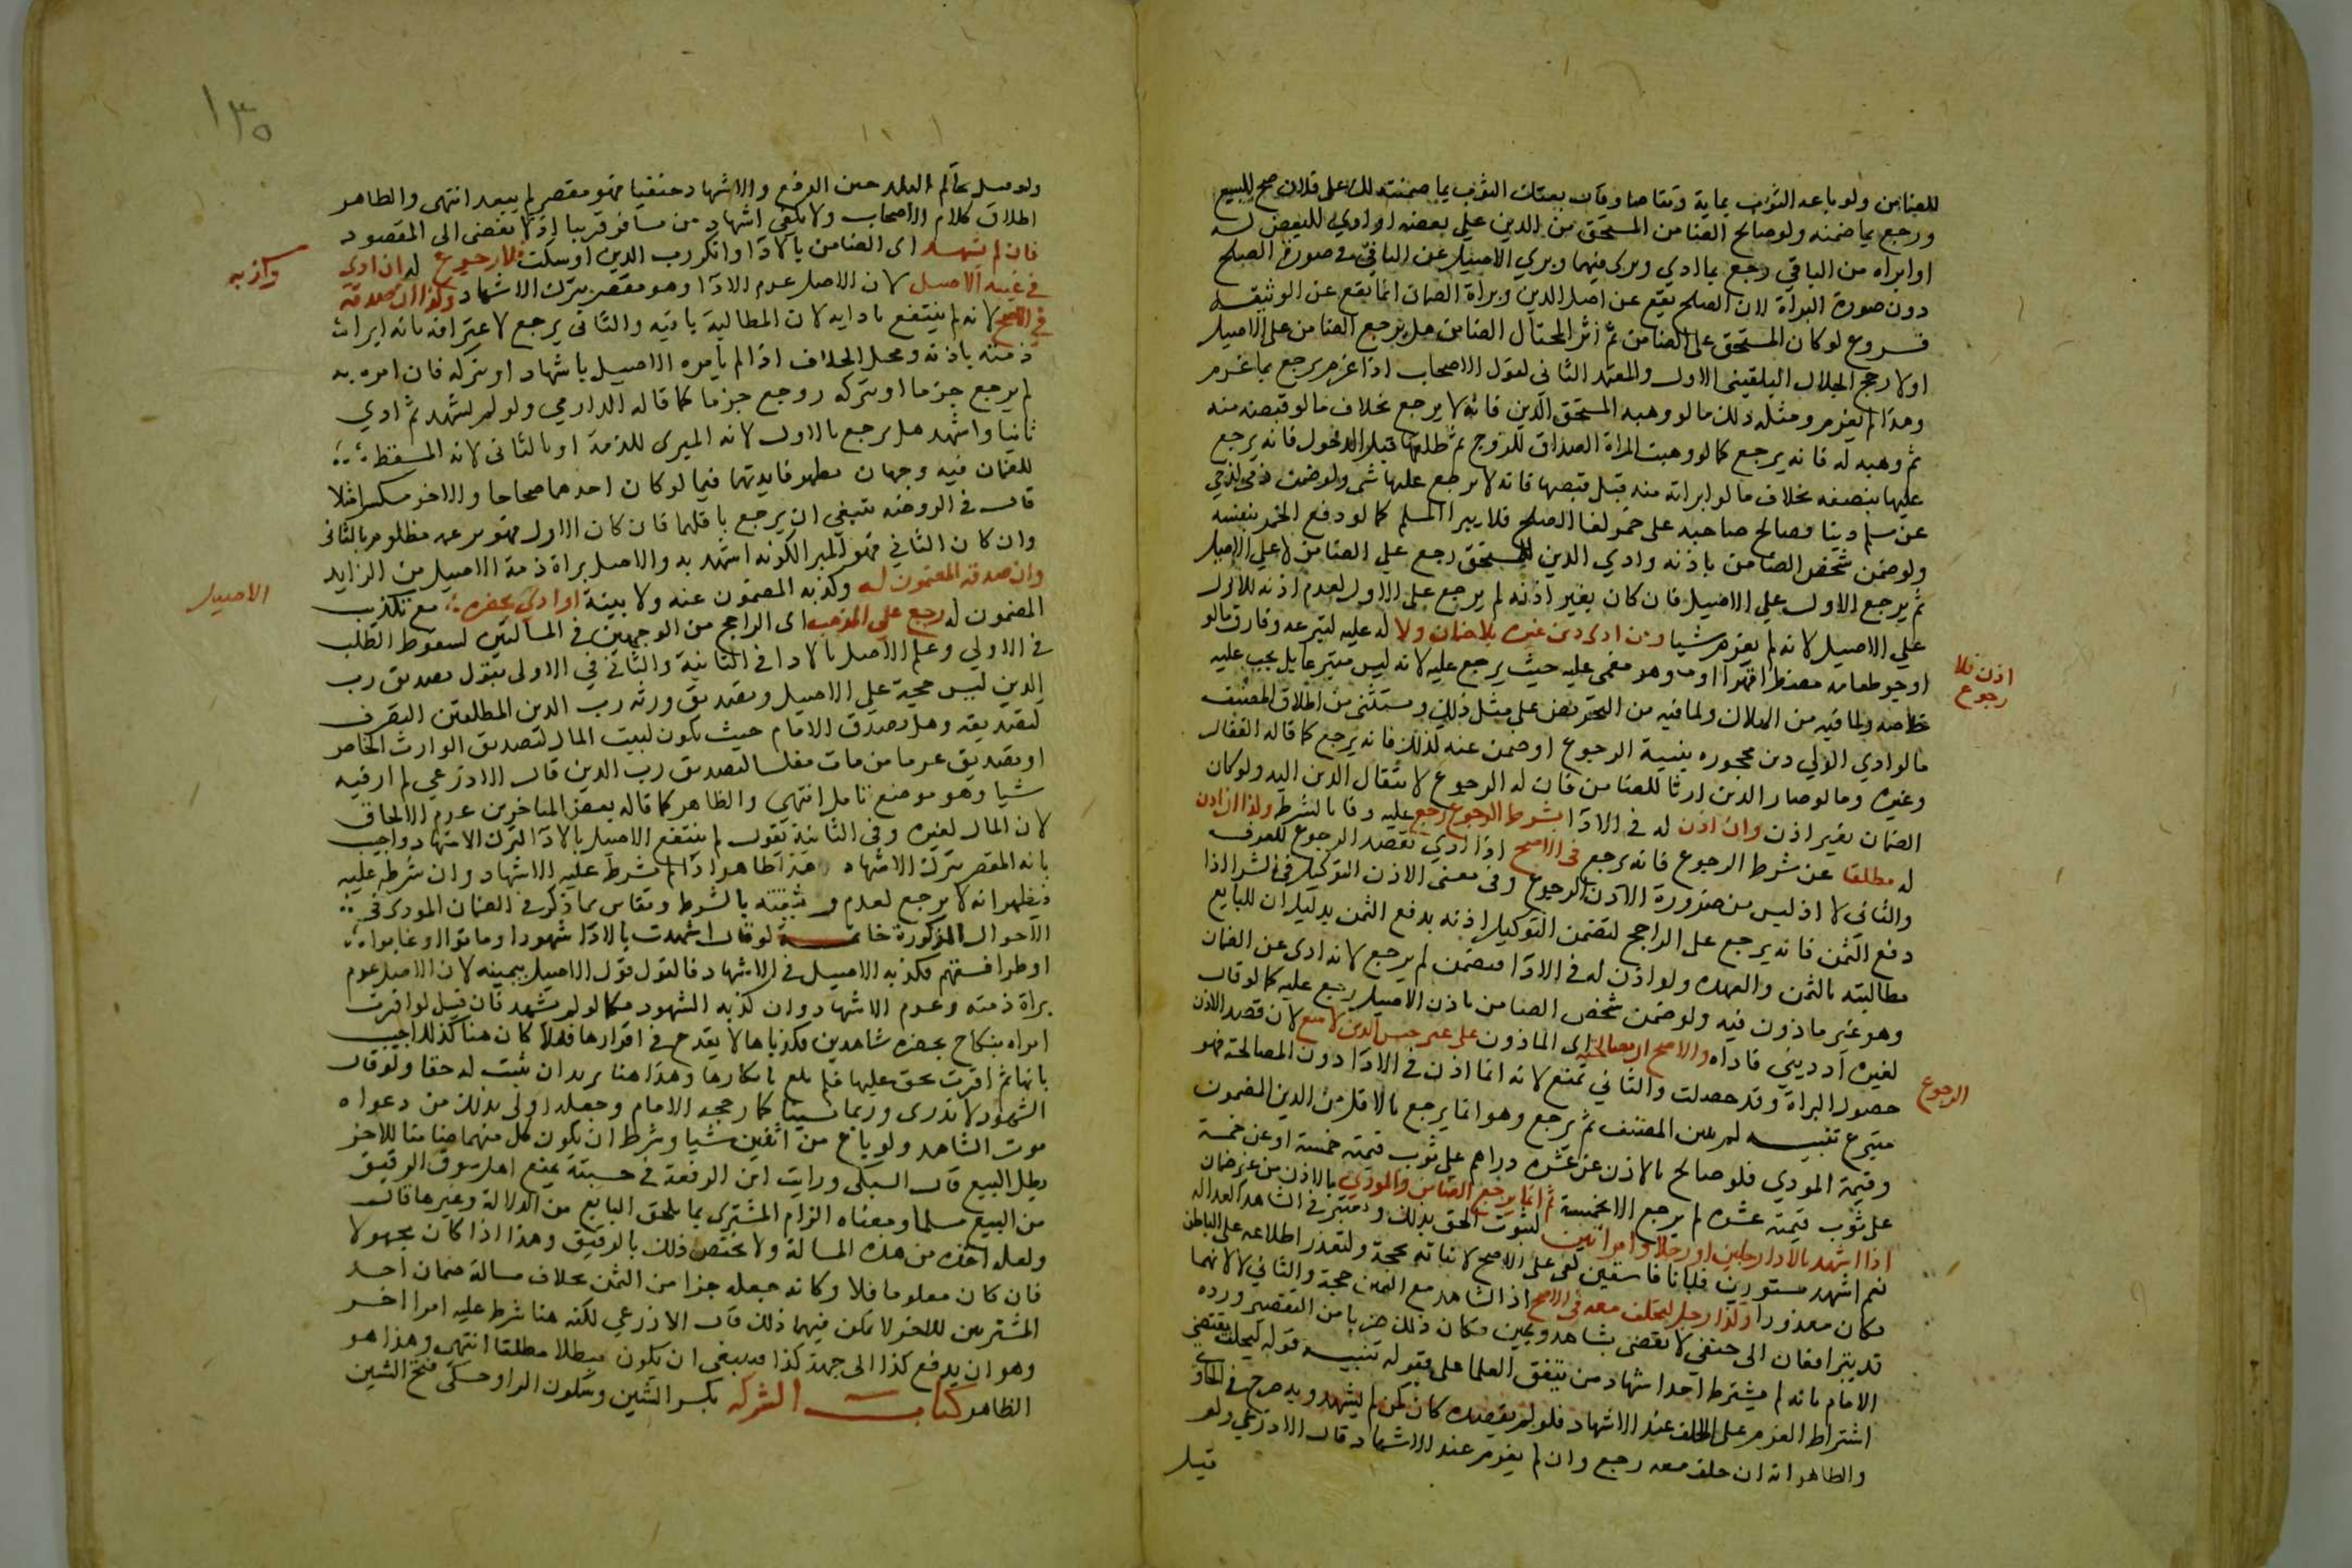 للضامن ولو باعه الثوب بماية وتقاصا وقال بعتك الثوب بما ضمنته لك على فلان صح البيع
ورجع بما ضمنه ولو صالح الضامن المستحق من الدين على بعضه او ادي للبعض له
او ابراه من الباقي رجع بما ادي وبرى فيهما وبري الاصيل عن الباقي في صورة الصلح
دون صورة البراة لان الصلح يقع عن اصل الدين وبراة الضمان انما يقع عن الوثيقه
فروع لو كان المستحق على الضامن ثم المحتال الضامن هل يرجع الضامن على الاصيل
او لا رجح الجلال البلقيني الاول والمعتمد الثاني لقول الاصحاب اذا غرم يرجع بما غرم
وهذا لم يغرم ومثل ذلك ما لو وهبه المستحق الدين فانه لا يرجع بخلاف ما لو قبضه منه
ثم وهبه له فانه يرجع كما لو وهبت المراة الصداق للزوج ثم طلقها قبل الدخول فانه يرجع
عليها بنصفه بخلاف ما لو ابراته منه قبل قبضها فانه لا يرجع عليها بشي ولو ضمن ذمي لذمي
عن مسلم دينا فصالح صاحبه على خمر لغا الصلح فلا يبرا المسلم كما لو دفع الخمر بنفسه
ولو ضمن شخص الضامن باذنه وادي الدين للمستحق رجع علي الضامن لا علي الاصيل
ثم يرجع الاول علي الاصيل فان كان بغير اذنه لم يرجع على الاول لعدم اذنه للاول
علي الاصيل لانه لم يغرم شيا ومن ادى دين غيره بلا ضمان ولا له عليه لتبرعه وفارق ما لو
اذن فلا
رجوع
اوجر طعامه مضطرا قهرا او وهو مغمى عليه حيث يرجع عليه لانه ليس متبرعا بل يجب عليه
خلاصه ولما فيه من التحريض على مثل ذلك ويستثنى من اطلاق المصنف
ما لو ادي الولي دين محجوره بنية الرجوع او ضمن عنه لذلك فانه يرجع كما قاله القفال
وغيره وما لو صار الدين ارثا للضامن فان له الرجوع لانتقال الدين اليه ولو كان
الضمان بغير اذن وان اذن له في الادا بشرط الرجوع رجع عليه وفا بالشرط وكذا ان اذن
له مطلقا عن شرط الرجوع فانه يرجع في الاصح اذا ادي بقصد الرجوع للعرف
والثاني لا اذ ليس من ضرورة الاذن الرجوع وفي معنى الاذن التوكيل في الشرا اذا
دفع الثمن فانه يرجع على الراجح لتضمن التوكيل اذنه بدفع الثمن بدليل ان للبايع
مطالبته بالثمن والعهده ولو اذن له في الادا فضمن لم يرجع لانه ادى عن الضمان
وهو غير ماذون فيه ولو ضمن شخص الضامن باذن الاصيل رجع عليه كما لو قال
لغيره اد ديني فاداه والاصح ان مصالحته اي الماذون على غير جنس الدين لا تمنع لان قصد الاذن
الرجوع
حصول البراة وقد حصلت والثاني تمنع لانه انما اذن في الادا دون المصالحة فهو
متبرع تنبيه لم يبين المصنف ثم يرجع وهو انما يرجع بالاقل من الدين المضمون
وقيمة المودي فلو صالح بالاذن عن عشره دراهم على ثوب قيمته خمسة او عن خمسة
على ثوب قيمته عشره لم يرجع الا بخمسة ثم انما يرجع الضامن والمودي بالاذن من غير ضمان
اذا اشهد بالادا رجلين او رجلا وامراتين لثبوت الحق بذلك ويعتبر في الشاهد العداله
نعم اشهد مستورين فبانا فاسقين كفى على الاصح لاتيانه بحجة ولتعذر اطلاعه على الباطن
فكان معذورا وكذا رجل ليحلف معه في الاصح اذ الشاهد مع اليمين حجة والثاني لا لانهما
قد يترافعان الى حنفي لا يقضي بشاهد ويمين فكان ذلك ضربا من التقصير ورده
الامام بانه لم يشترط احد اشهاد من يتفق العلما على قبوله تنبيه قوله ليحلف يقتضي
اشتراط العزم على الحلف عند الاشهاد فلو لم يقصده كان كمن لم يشهد وبه صرح في الحاوي
والظاهر انه ان حلف معه رجع وان لم يعزم عند الاشهاد قال الاذرعي ولو
قيل
١٣٥
ولو قيل حاكم البلد حين الدفع والاشهاد حنفيا فهو مقصر لم يبعد انتهى والظاهر
اطلاق كلام الاصحاب ولا يكفي اشهاد من مسافر قريبا اذ لا يفضي الى المقصود
فان لم يشهد اى الضامن بالادا وانكر رب الدين او سكت فلا رجوع له ان ادى
وكذبه
في غيبة الاصيل لان الاصل عدم الادا وهو مقصر بترك الاشهاد وكذا ان صدقه
في الاصح لانه لم ينتفع بادايه لان المطالبة باقيه والثاني يرجع لاعترافه بانه ابراء
ذمته باذنه ومحل الخلاف اذا لم يامره الاصيل باشهاد او بتركه فان امره به
لم يرجع جزما او بتركه رجع جزما كما قاله الدارمي ولو لم يشهد ثم ادي
ثانيا واشهد هل يرجع بالاول لانه المبري للذمة او بالثاني لانه المسقط
للضمان فيه وجهان تظهر فايدتهما فيما لو كان احدهما صحاحا والاخر مكسرا مثلا
قال في الروضه ينبغي ان يرجع باقلهما فان كان الاول فهو يزعم انه مظلوم بالثاني
وان كان الثاني فهو المبرا لكونه اشهد به والاصل براة ذمة الاصيل من الزايد
وان صدقه المضمون له وكذبه المضمون عنه ولا بينة او ادي بحضره مع تكذيب
الاصيل
المضمون له رجع علي المذهب اى الراجح من الوجهين في المسالتين لسقوط الطلب
في الاولي وعلم الاصيل بالادا في الثانية والثاني في الاولى يقول تصديق رب
الدين ليس حجة علي الاصيل وتصديق ورثة رب الدين المطلقين التصرف
كتصديقه وهل تصديق الامام حيث يكون لبيت المال كتصديق الوارث الخاص
او تصديق غرما من مات مفلسا كتصديق رب الدين قال الاذرعي لم ار فيه
شيا وهو موضع تامل انتهى والظاهر كما قاله بعض المتاخرين عدم الالحاق
لان المال لغيره وفي الثانية تقول لم ينتفع الاصيل بالادا لترك الاشهاد واجيب
بانه المقصر بترك الاشهاد هذا ظاهر اذا لم يشرط عليه الاشهاد وان شرطه عليه
فيظهر انه لا يرجع لعدم بالشرط ويقاس بما ذكر في الضمان المودي في
الاحوال المذكورة خاتمة لو قال اشهدت بالادا شهودا وماتوا او غابوا
او طرا فسقهم فكذبه الاصيل في الاشهاد فالقول قول الاصيل بيمينه لان الاصل عدم
براة ذمته وعدم الاشهاد وان كذبه الشهود فكما لو لم يشهد فان قيل لو اقرت
امراه بنكاح بحضره شاهدين فكذباها لا يقدح في اقرارها فهلا كان هنا كذلك اجيب
بانها ثم اقرت بحق عليها فلم يلغ بانكارها وهذا هنا يريد ان يثبت له حقا ولو قال
الشهود لا ندري وربما نسينا كما رجحه الامام وجعله اولى بذلك من دعواه
موت الشاهد ولو باع من اثنين شيا وشرط ان يكون كل منهما ضامنا للاخر
بطل البيع قال السبكي ورايت ابن الرفعة في حسبته يمنع اهل سوق الرقيق
من البيع مسلما ومعناه الزام المشتري بما يلحق البايع من الدلالة وغيرها قال
ولعله اخذه من هذه المسالة ولا يختص ذلك بالرقيق وهذا اذا كان مجهولا
فان كان معلوما فلا وكانه جعله جزا من الثمن بخلاف مسالة ضمان احد
المشتريين للاخر لا يمكن فيهما ذلك قال الاذرعي لكنه هنا شرط عليه امرا اخر
وهو ان يدفع كذا الى جهة كذا فينبغي ان يكون مبطلا مطلقا انتهى وهذا هو
الظاهر كتاب الشركه بكسر الشين وسكون الرا وحكى فتح الشين